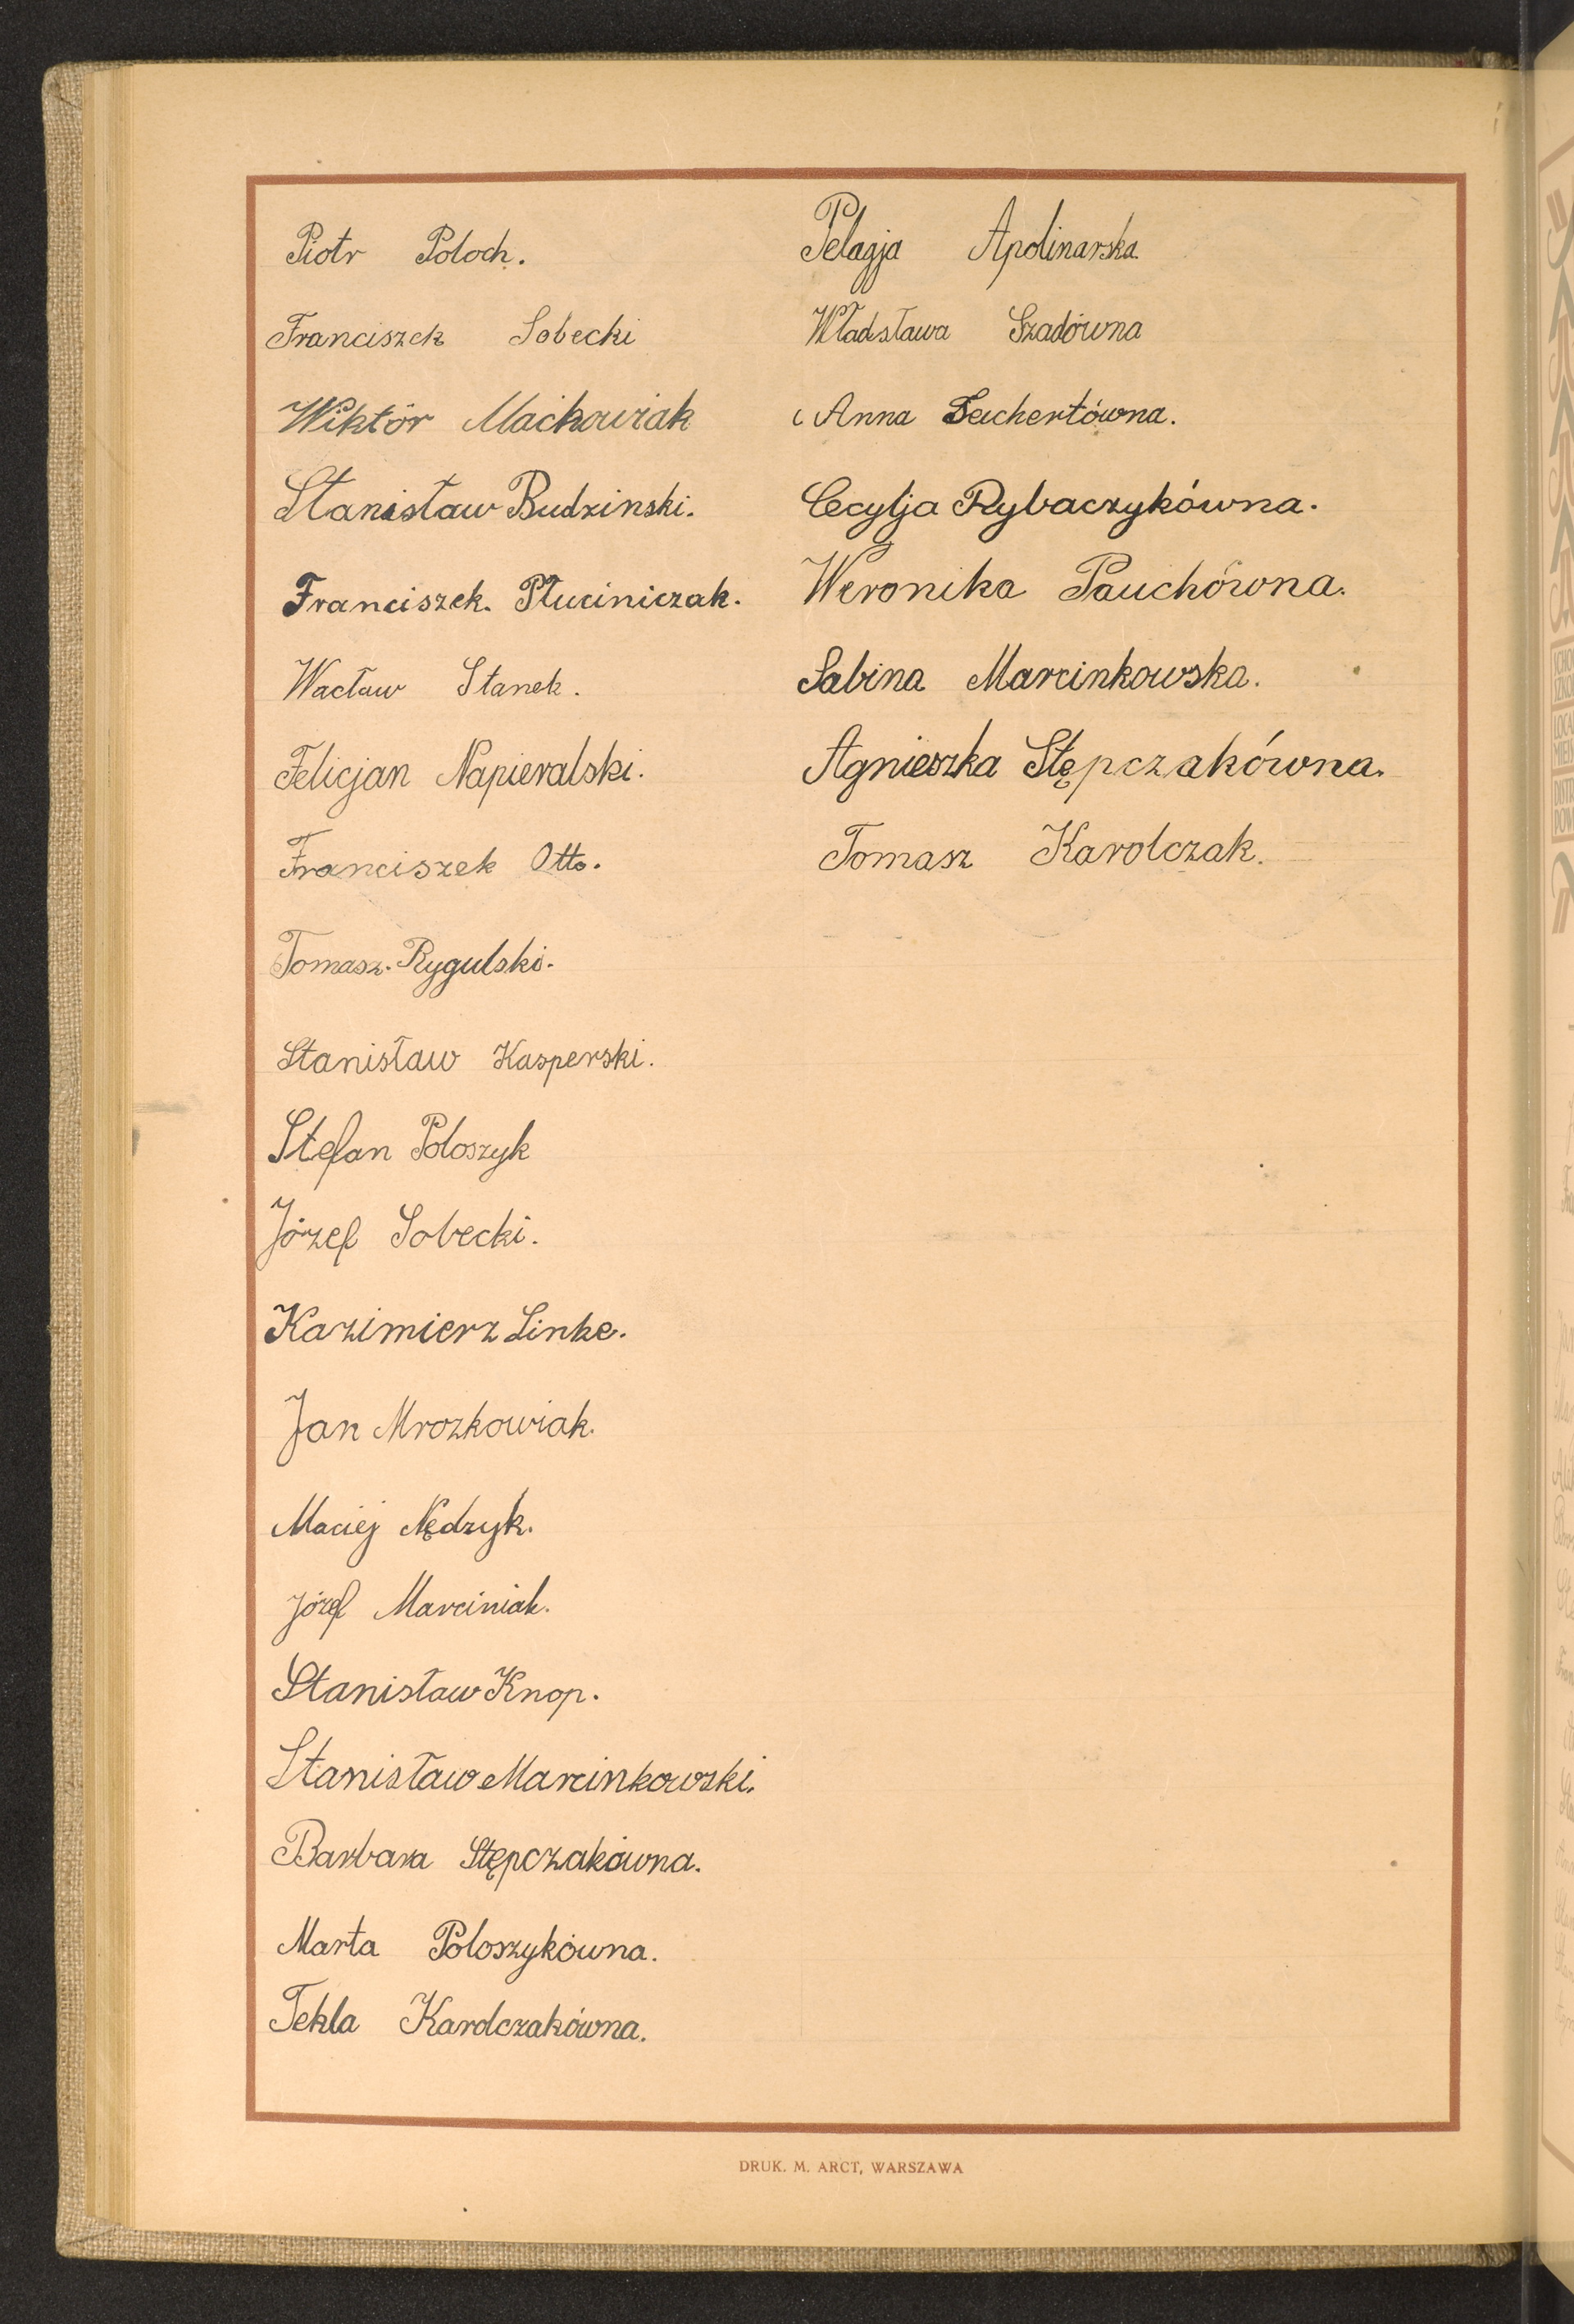 Piotr Poloch.
Franciszek Sobecki
Wiktór Maćkowiak
Stanisław Budzinski.
Franciszek. Płuciniczak.
Wacław Stanek.
Felicjan Napieralski.
Franciszek Otto.
Tomasz. Rygulski.
Stanisław Kasperski.
Stefan Poloszyk
Józef Sobecki.
Kazimierz Linke.
Jan Mrozkowiak.
Maciej Nędzyk.
Józef Marciniak.
Stanisław Knop.
Stanisław Marcinkowski.
Barbara Stępczakówna.
Marta Poloszykówna.
Tekla Karolczakówna.
Pelagja Apolinarska
Władsława Szadówna
Anna
Cecylja Rybaczykówna.
Weronika Pauchówna.
Sabina Marcinkowska.
Agnieszka Stępczakówna.
Tomasz Karolczak.
DRUK. M. ARCT, WARSZAWA